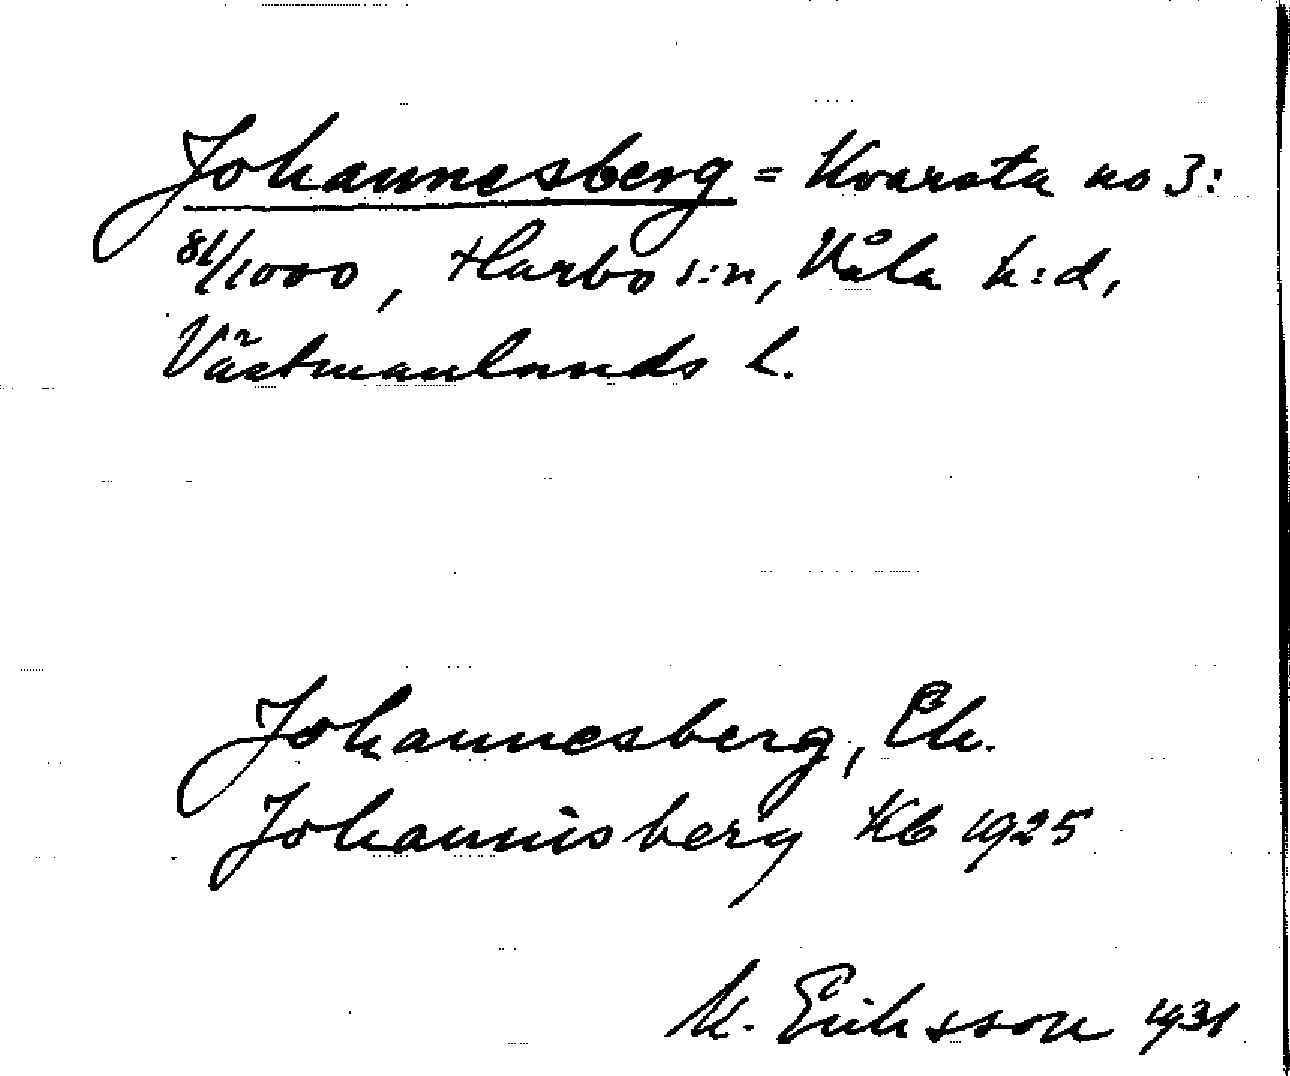 Johannesberg = Kvarsta no 3:
81/1000, Harbo s:n, Våla h:d,
Västmanlands l.
Johannesberg, Ek.
Johannisberg Kb 1925
M. Eriksson 1931